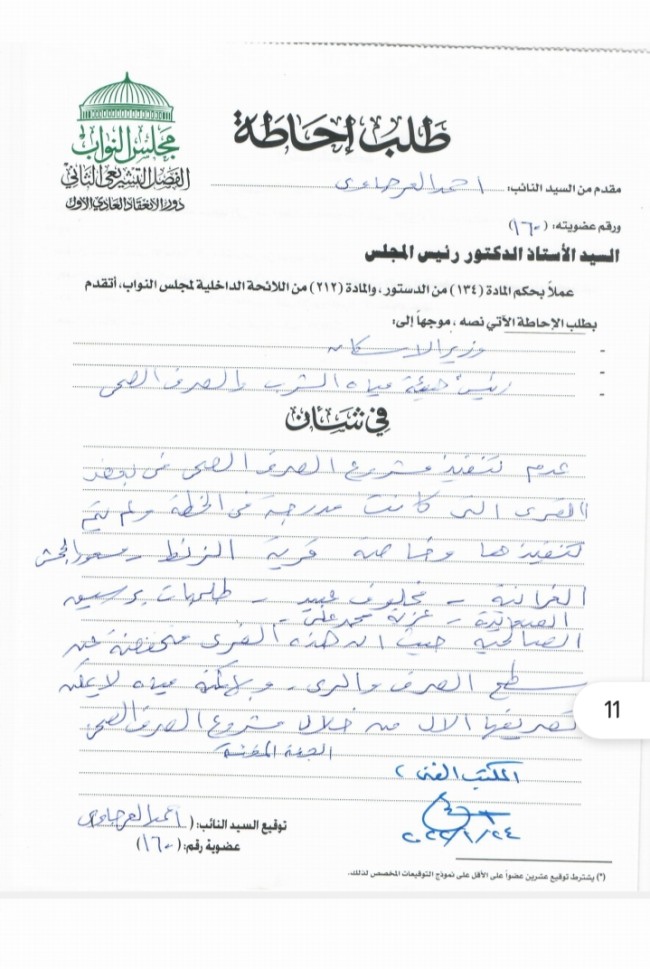 مجلس النواب
الفصل التشريعي الثاني
دور الانعقاد العادي الأول
طلب إحاطة
مقدم من السيد النائب: احمد العرجاوى
ورقم عضويته: (١٦٠)
السيد الأستاذ الدكتور رئيس المجلس
عملاً بحكم المادة (١٣٤) من الدستور، والمادة (٢١٢) من اللائحة الداخلية لمجلس النواب، أتقدم
بطلب الإحاطة الآتي نصه، موجهاً إلى:
- وزير الاسكان
-
- رئيس هيئة مياه الشرب والصرف الصحى
في شأن
عدم تنفيذ مشروع الصرف الصحى فى بعض
القرى التى كانت مدرجة فى الخطة ولم يتم
تنفيذها وخاصة قرية الزنط - مسعود الجحش
الفرانية - مخلوف عبيد - طلمبات برسيق
- عزبة محمد على -
الصالحية حيث ان هذه القرى منخفضة عن
سطح الصرف والرى. مياه لا يمكن
تصريفها الا من خلال مشروع الصرف الصحى.
المكتب الفنى
٢٠٢٢/١/٢٤
توقيع السيد النائب: (احمد العرجاوى)
عضوية رقم: (١٦٠)
(*) يشترط توقيع عشرين عضواً على الأقل على نموذج التوقيعات المخصص لذلك.
11